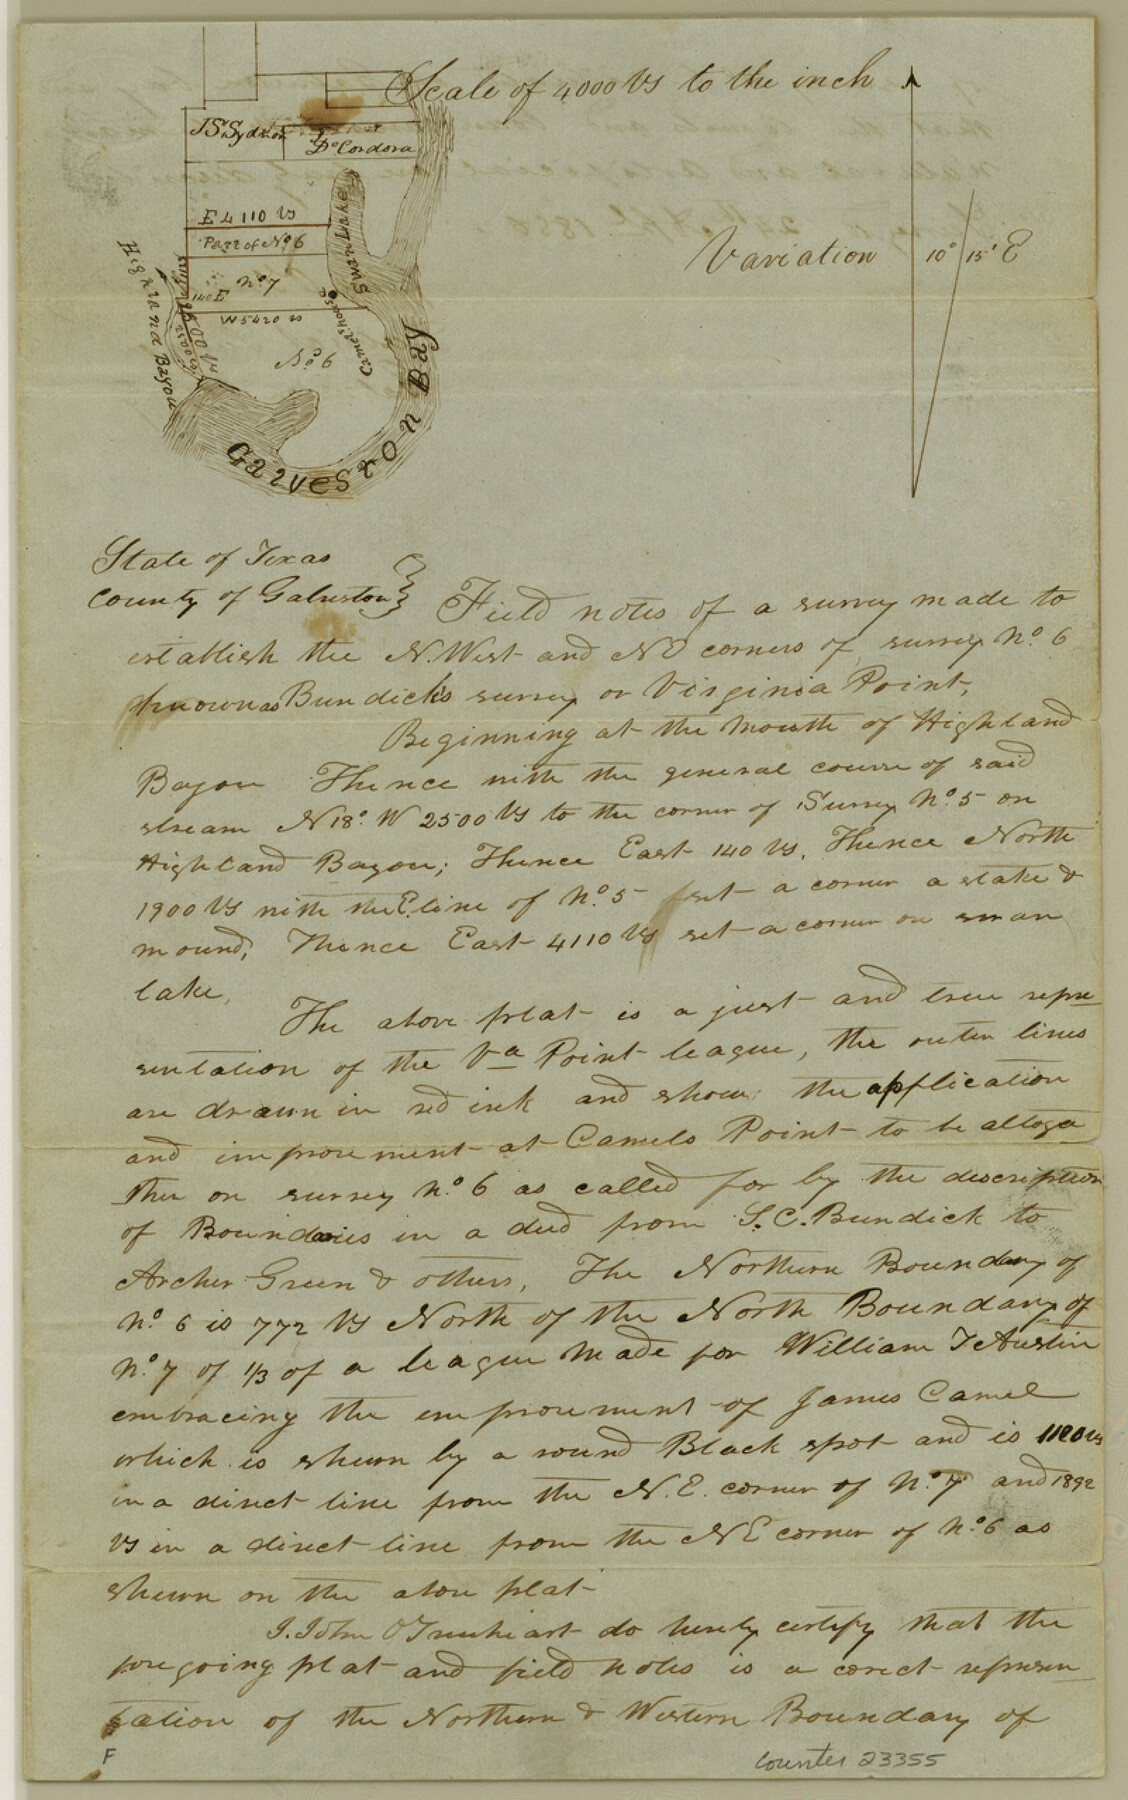 Scale of 4000 Vs to the inch
J S Sydnor
De Cordova
E 4110 Vs
Part of No 6
No 7
140 E
W 5420 vs
No 6
Swan Lake
Camel's house
Highland Bayou
Galveston Bay
Variation 10° 15' E
State of Texas
County of Galveston
Field notes of a survey made to
establish the N. West and NE corners of survey No. 6
known as Bundick's survey or Virginia Point,
Beginning at the Mouth of Highland
Bayou Thence with the general course of said
stream N 18° W 2500 Vs to the corner of Survey No. 5 on
Highland Bayou; Thence East 140 Vs. Thence North
1900 Vs with the E. line of No. 5 set a corner a stake &
mound, Thence East 4110 Vs set a corner on swan
lake,
The above plat is a just and true repre
sentation of the Va Point league, the outer lines
are drawn in red ink and shows the application
and improvement at Camels Point to be altoge
ther on survey No. 6 as called for by the description
of Boundaries in a deed from S. C. Bundick to
Archer Green & others, The Northern Boundary of
No. 6 is 772 Vs North of the North Boundary of
No. 7 of 1/3 of a league made for William T Austin
embracing the improvement of James Camel
which is shewn by a round Black spot and is 1120 vs
in a direct line from the N. E. corner of No. 7 and 1892
Vs in a direct line from the NE corner of No. 6 as
shewn on the above plat
I. John O Trueheart do hereby certify that the
foregoing plat and field notes is a corect represen
tation of the Northern & Western Boundary of
F
counter 23355